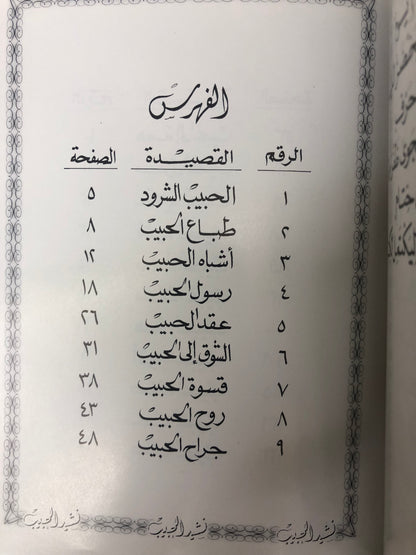 الفهرس
الرقم القصيدة الصفحة
١ الحبيب الشرود ٥
٢ طباع الحبيب ٨
٣ أشباه الحبيب ١٢
٤ رسول الحبيب ١٨
٥ عقد الحبيب ٢٦
٦ الشوق إلى الحبيب ٣١
٧ قسوة الحبيب ٣٨
٨ روح الحبيب ٤٣
٩ جراح الحبيب ٤٨
نشيد الحبيب نشيد الحبيب نشيد الحبيب